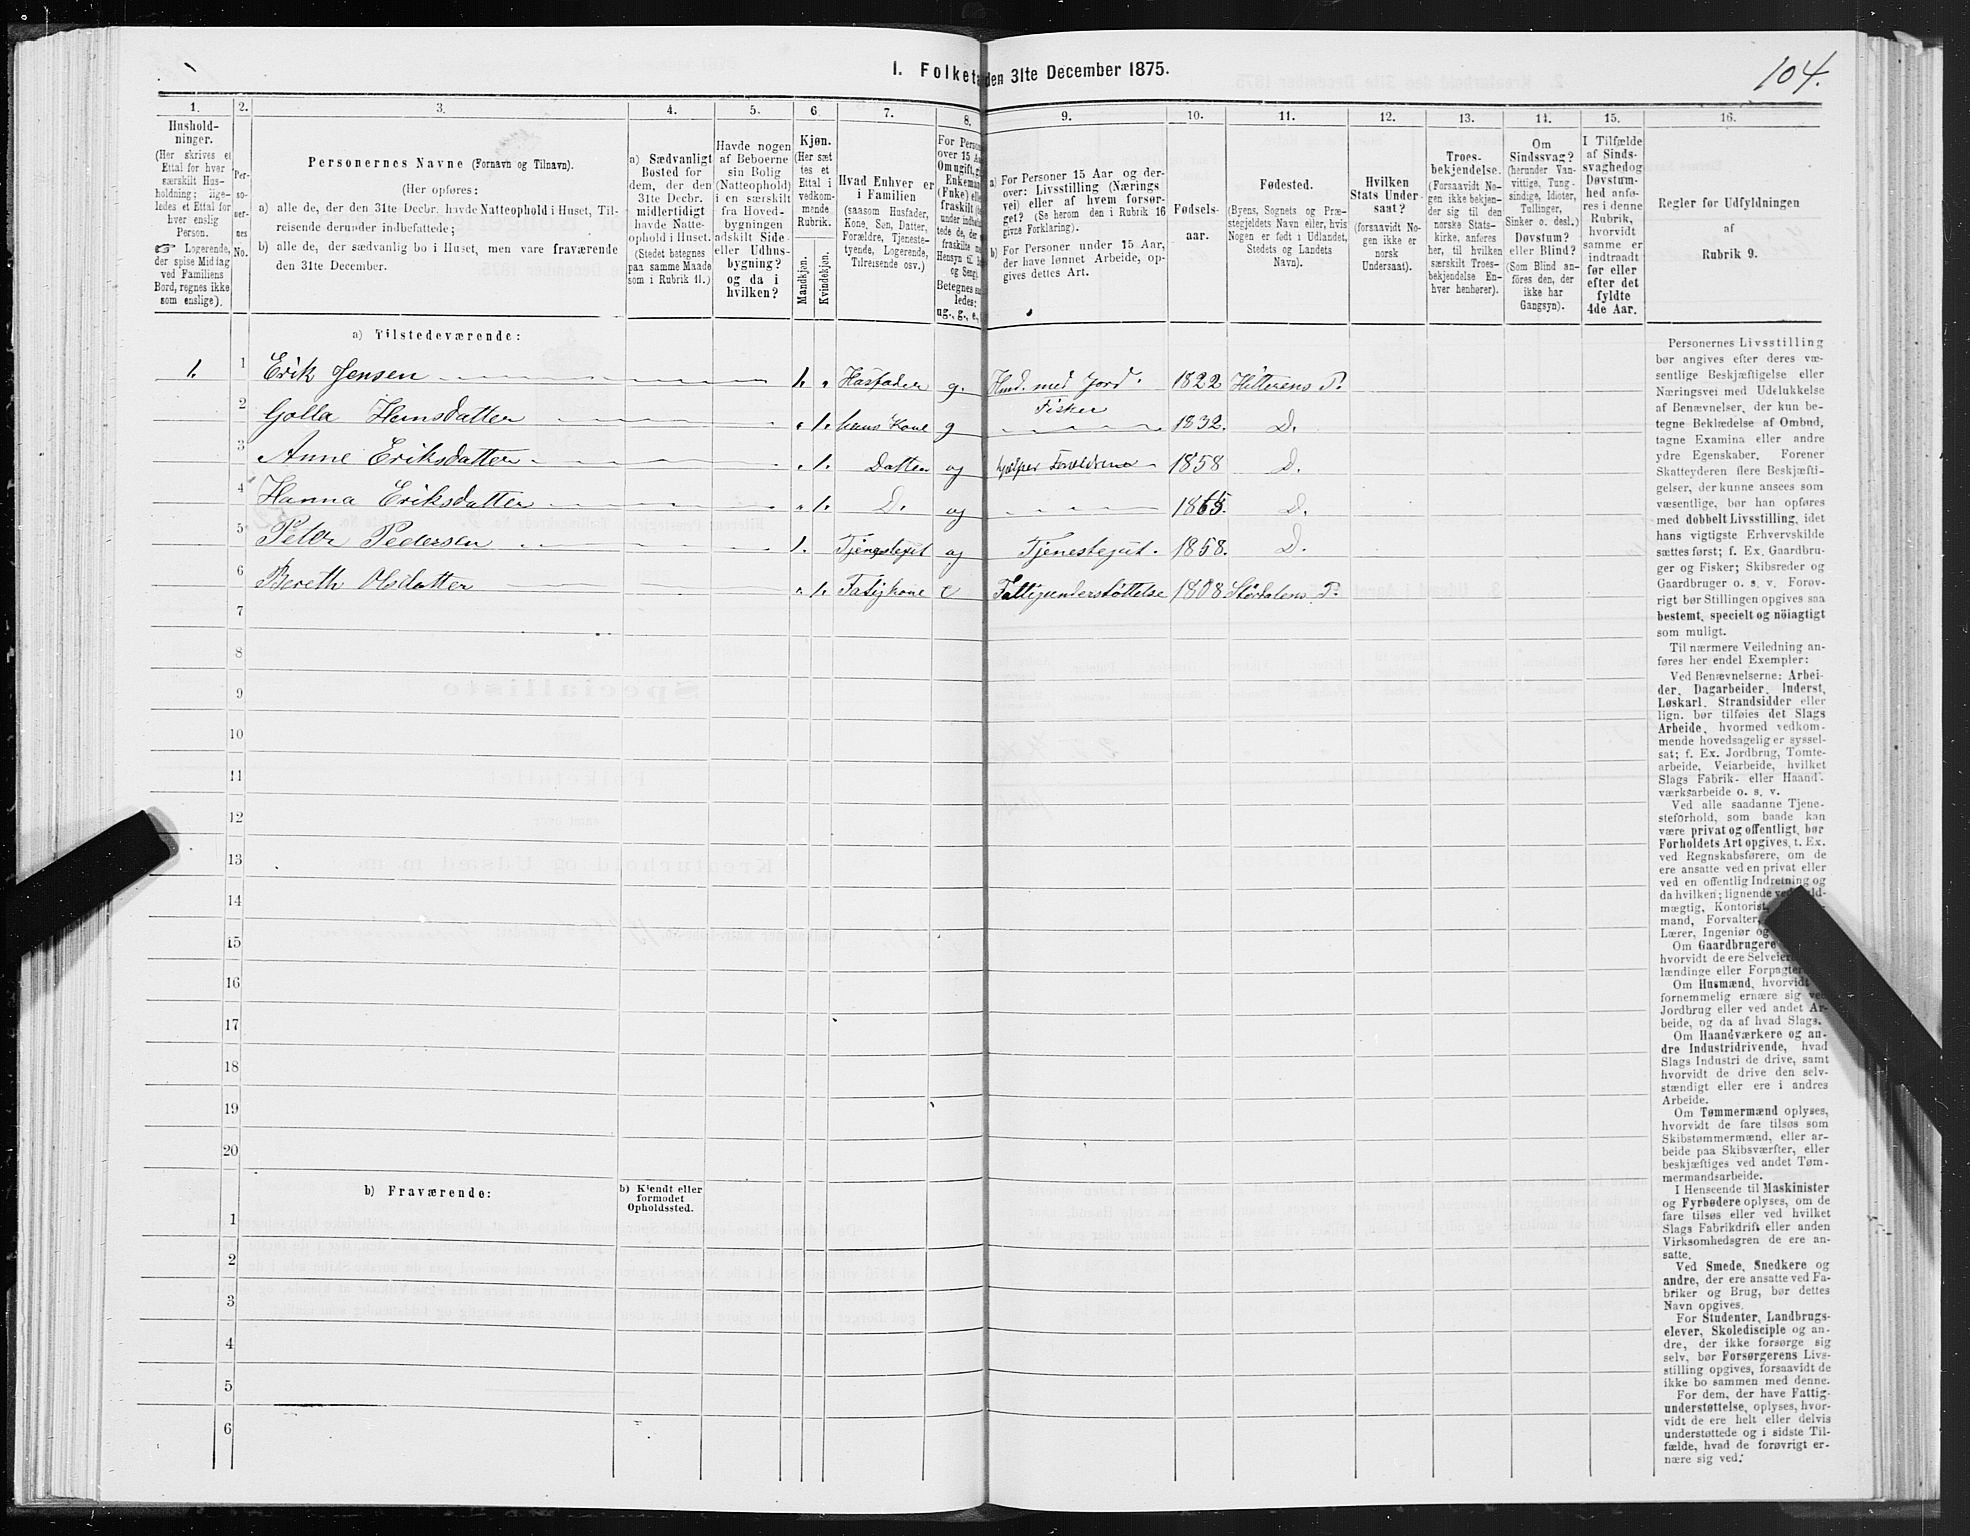 104.
I. Folket
den 31te December 1875.
1.
2.
3.
4.
5.
6
7.
8.
9.
10.
11.
12.
13.
14.
15.
16.
Hushold-
ninger.
(Her skrives et
Ettal for hver
særskilt Hus-
holdning; lige-
ledes et Ettal for
hver enslig
Person.
☞ Logerende,
der spise Middag
ved Familiens
Bord, regnes ikke
som enslige).
Per-
so-
ner-
nes
No.
Personernes Navne (Fornavn og Tilnavn).
(Her opføres:
a) alle de, der den 31te Decbr. havde Natteophold i Huset, Til-
reisende derunder indbefattede;
b) alle de, der sædvanlig bo i Huset, men vare fraværende
den 31te December.
a) Sædvanligt
Bosted for
dem, der den
31te Decbr.
midlertidigt
havde Natte-
ophold i Huset.
(Stedet betegnes
paa samme Maade
som i Rubrik 11.)
Havde nogen
af Beboerne
sin Bolig
(Natteophold)
i en særskilt
fra Hoved-
bygningen
adskilt Side-
eller Udhus-
bygning?
og da i
hvilken?
Kjøn.
(Her sæt
tes et
Ettal i
vedkom-
mende
Rubrik.
Mandkjøn.
Kvindekjøn.
Hvad Enhver er
i Familien
(saasom Husfader,
Kone, Søn, Datter,
Forældre, Tjeneste-
tyende, Logerende,
Tilreisende osv.)
For Perso
over 15 Aa
Om ugift, gi
Enkeman
(Enke) elle
fraskilt
under indbefat
tede de, de
fraskilte
Hensyn
og Seng)
Betegnes
ledes:
ug., g., e.,
a) For Personer 15 Aar og der-
over: Livsstilling (Nærings
vei) eller af hvem forsør-
get? (Se herom den i Rubrik 16
givne Forklaring).
b) For Personer under 15 Aar,
der have lønnet Arbeide, op-
gives dettes Art.
Fødsels-
aar.
Fødested.
(Byens, Sognets og Præ-
stegjeldets Navn eller, hvis
Nogen er født i Udlandet,
Stedets og Landets
Navn).
Hvilken
Stats Under-
saat?
(forsaavidt No-
gen ikke er
norsk
Undersaat).
Troes-
bekjendelse.
(Forsaavidt No-
gen ikke bekjen-
der sig til den
norske Stats-
kirke, anføres
her, til hvilken
særskilt Troes-
bekjendelse En-
hver henhører).
Om
Sindssvag?
(herunder Van-
vittige, Tung-
sindige, Idioter,
Tullinger,
Sinker o. desl.)
Døvstum?
eller Blind?
(Som Blind an-
føres den, der
ikke har
Gangsyn).
I Tilfælde
af Sinds-
svaghed og
Døvstum-
hed anfø-
res i denne
Rubrik,
hvorvidt
samme er
indtraadt
før eller
efter det
fyldte
4de Aar.
Regler for Udfyldningen
af
Rubrik 9.
a) Tilstedeværende:
1. 1 Erik Jensen 1. „ Husfader g. Husd. med Jord. Fisker 1822 Hitterens P.
2 Golla Hansdatter „ 1. hans Kone g 1832. D.
3 Anne Eriksdatter „ 1. Datter ug hjelper Forældrene 1858 D.
4 Hanna Eriksdatter „ 1. D. ug 1865. D.
5 Peter Pedersen 1. Tjenestegut ug Tjenestegut. 1858. D.
6 Bereth Olsdatter „ 1. Fatigkone e Fattigunderstøttelse 1808 Størdalens P.
7
8
9
10
11
12
13
14
15
16
17
18
19
20
b) Fraværende:
b) Kjendt eller
formodet
Opholdssted.
1
2
3
4
5
6
Personernes Livsstilling
bør angives efter deres væ-
sentlige Beskjæftigelse eller
Næringsvei med Udelukkelse
af Benævnelser, der kun be-
tegne Beklædelse af Ombud,
tagne Examina eller andre
ydre Egenskaber. Forener
Skatteyderen flere Beskjæfti-
gelser, der kunne ansees som
væsentlige, bør han opføres
med dobbelt Livsstilling, idet
hans vigtigste Erhvervskilde
sættes først; f. Ex. Gaardbru-
ger og Fisker; Skibsreder og
Gaardbruger o. s. v. Forøv-
rigt bør Stillingen opgives saa
bestemt, specielt og nöiagtigt
som muligt.
Til nærmere Veiledning an-
føres her endel Exempler:
Ved Benævnelserne: Arbei-
der, Dagarbeider, Inderst,
Løskarl, Strandsidder eller
lign. bør tilføies det Slags
Arbeide, hvormed vedkom-
mende hovedsagelig er syssel-
sat; f. Ex. Jordbrug, Tomte-
arbeide, Veiarbeide, hvilket
Slags Fabrik- eller Haand-
værksarbeide o. s. v.
Ved alle saadanne Tjene-
steförhold, som baade kan
være privat og offentligt, bør
Forholdets Art opgives, t. Ex.
ved Regnskabsførere, om de
ere ansatte ved en privat eller
ved en offentlig Indretning og
da hvilken; lignende ved
mægtig, Kontorist,
mand, Forvalter,
Lærer, Ingeniør og
Om Gaardbrugere
hvorvidt de ere Selveiere,
lændinge eller Forpagtere.
Om Husmænd, hvorvidt
fornemmelig ernære sig ved
Jordbrug eller ved andet Ar-
beide, og da af hvad Slags.
Om Haandværkere og an-
dre Industridrivende, hvad
Slags Industri de drive, samt
hvorvidt de drive den selv-
stændigt eller ere i andres
Arbeide.
Om Tømmermænd oplyses,
hvorvidt de fare tilsøs som
Skibstømmermænd, eller ar-
beide paa Skibsværfter, eller
beskjæftiges ved andet Tøm-
mermandsarbeide.
I Henseende til Maskinister
og Fyrbødere oplyses, om de
fare tilsøs eller ved hvilket
Slags Fabrikdrift eller anden
Virksomhedsgren de ere an-
satte.
Ved Smede, Snedkere og
andre, der ere ansatte ved Fa-
briker og Brug, bør dettes
Navn opgives.
For Studenter, Landbrugs-
elever, Skoledisciple og an-
dre, der ikke forsørge sig
selv, bør Forsørgerens Livs-
stilling opgives, forsaavidt de
ikke bo sammen med denne.
For dem, der have Fattig-
understøttelse, oplyses, hvor-
vidt de ere helt eller delvis
understøttede og i sidste Til-
fælde, hvad de forøvrigt er-
nære sig ved.